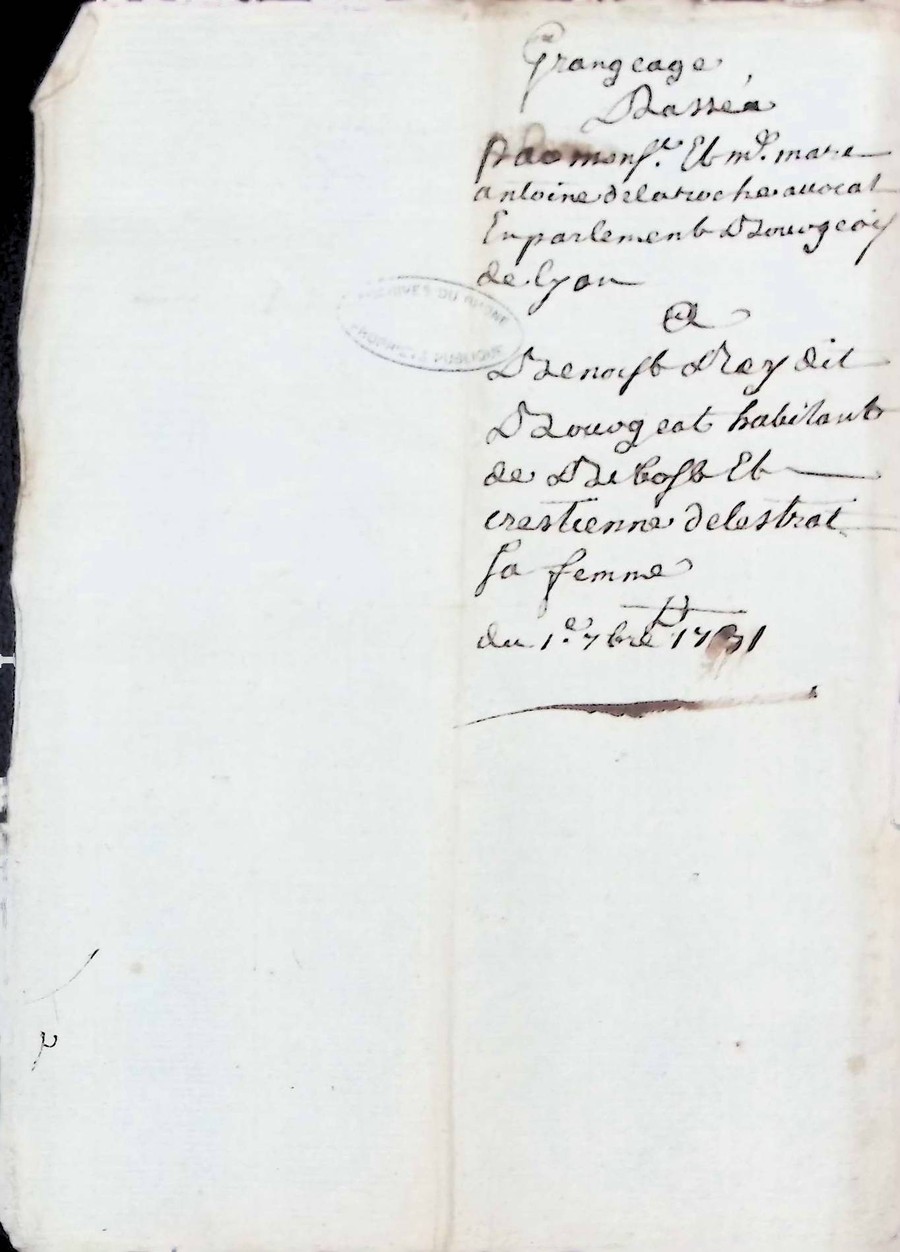 Grangeage
Passé
Par monsr. Et me. marc
antoine delaroche avocat
En parlement Bourgeois
de lyon
A
Benoist Rey dit
Bourgeat habitant
de Ribost Et
crestienne delestrat
sa femme
du 1er 7bre 1731
ARCHIVES DU RHONE
PROPRIÉTÉ PUBLIQUE